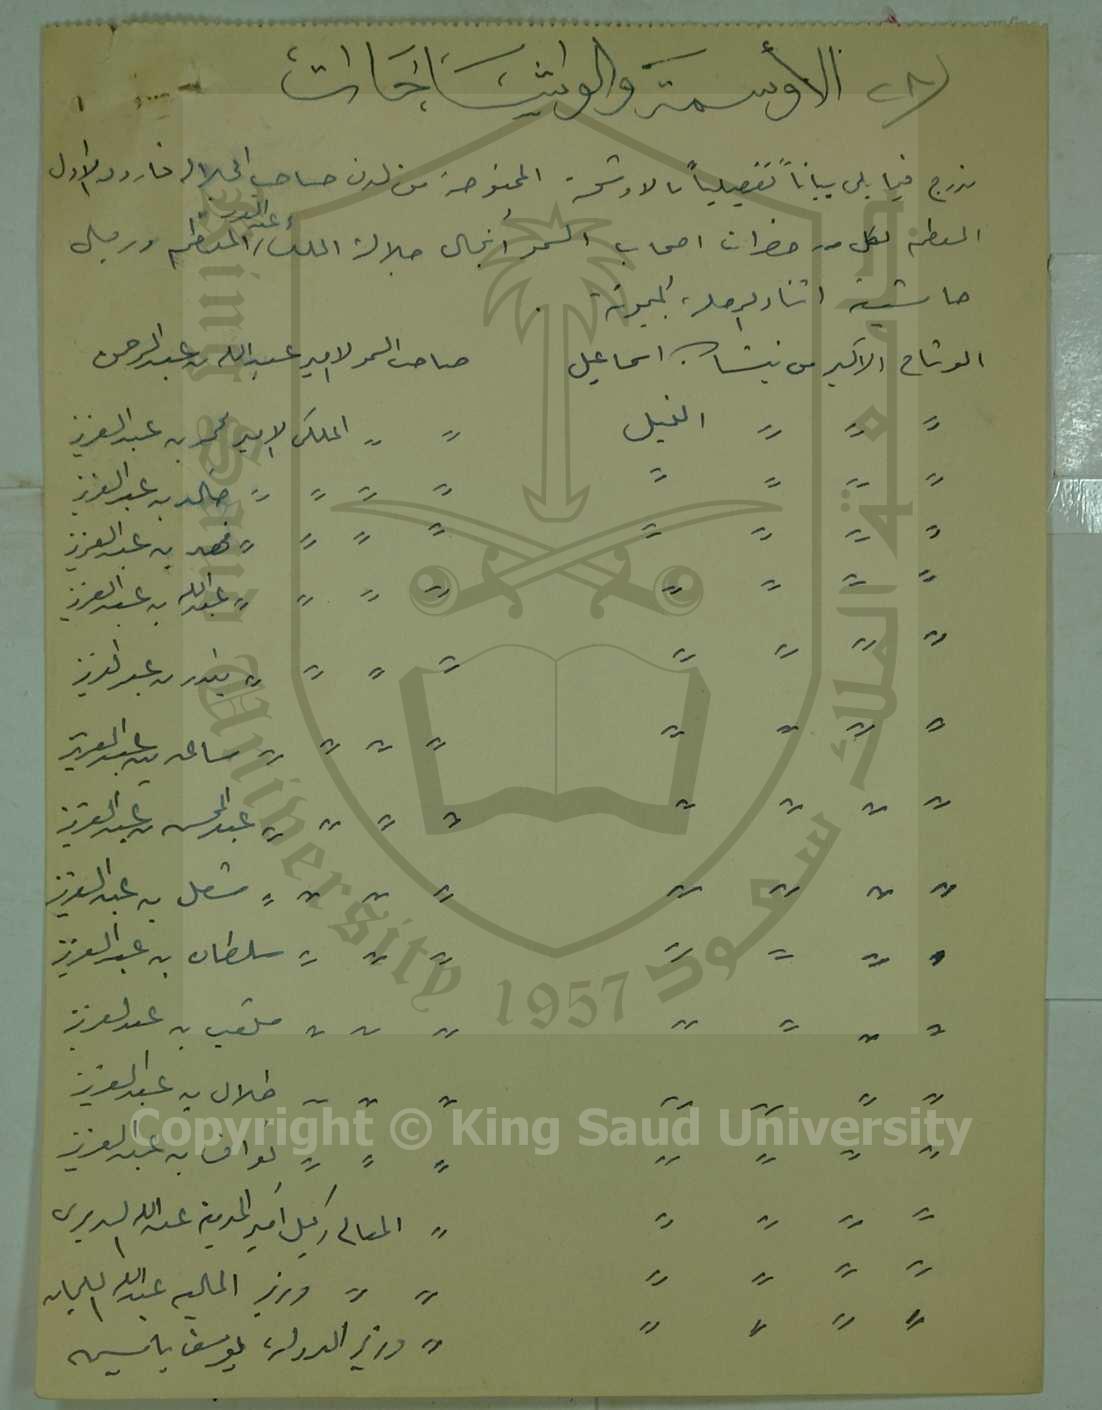 (٢٨ الأوسمة والوشاحات
١
ندرج فيما يلي بياناً تفصيلياً بالاوشحة الممنوحة من لدن صاحب الجلالة فاروق الاول
المعظم لكل من حضرات اصحاب السمو أنجال جلالة الملك عبد العزيز المعظم ورجال
حاشيته اثناء الرحلة الميمونة .
الوشاح الاكبر من نيشان اسماعيل صاحب السمو الامير عبد الله بن عبد الرحمن
" " " النيل " " الملكي الامير محمد بن عبد العزيز
" " " " " " " " خالد بن عبد العزيز
" " " " " " " " فهد بن عبد العزيز
" " " " " " " " عبد الله بن عبد العزيز
" " " " " " " " بندر بن عبد العزيز
" " " " " " " " ساعد بن عبد العزيز
" " " " " " " " عبد المحسن بن عبد العزيز
" " " " " " " " مشعل بن عبد العزيز
" " " " " " " سلطان بن عبد العزيز
" " " " " " " متعب بن عبد العزيز
" " " " " " " طلال بن عبد العزيز
" " " " " " " نواف بن عبد العزيز
" " " " " المعالي وكيل أمير المدينة عبد الله السديري
" " " " " " وزير المالية عبد الله السليمان
" " " " " وزير الدولة يوسف ياسين
جامعة الملك سعود
King Saud University
1957
Copyright © King Saud University